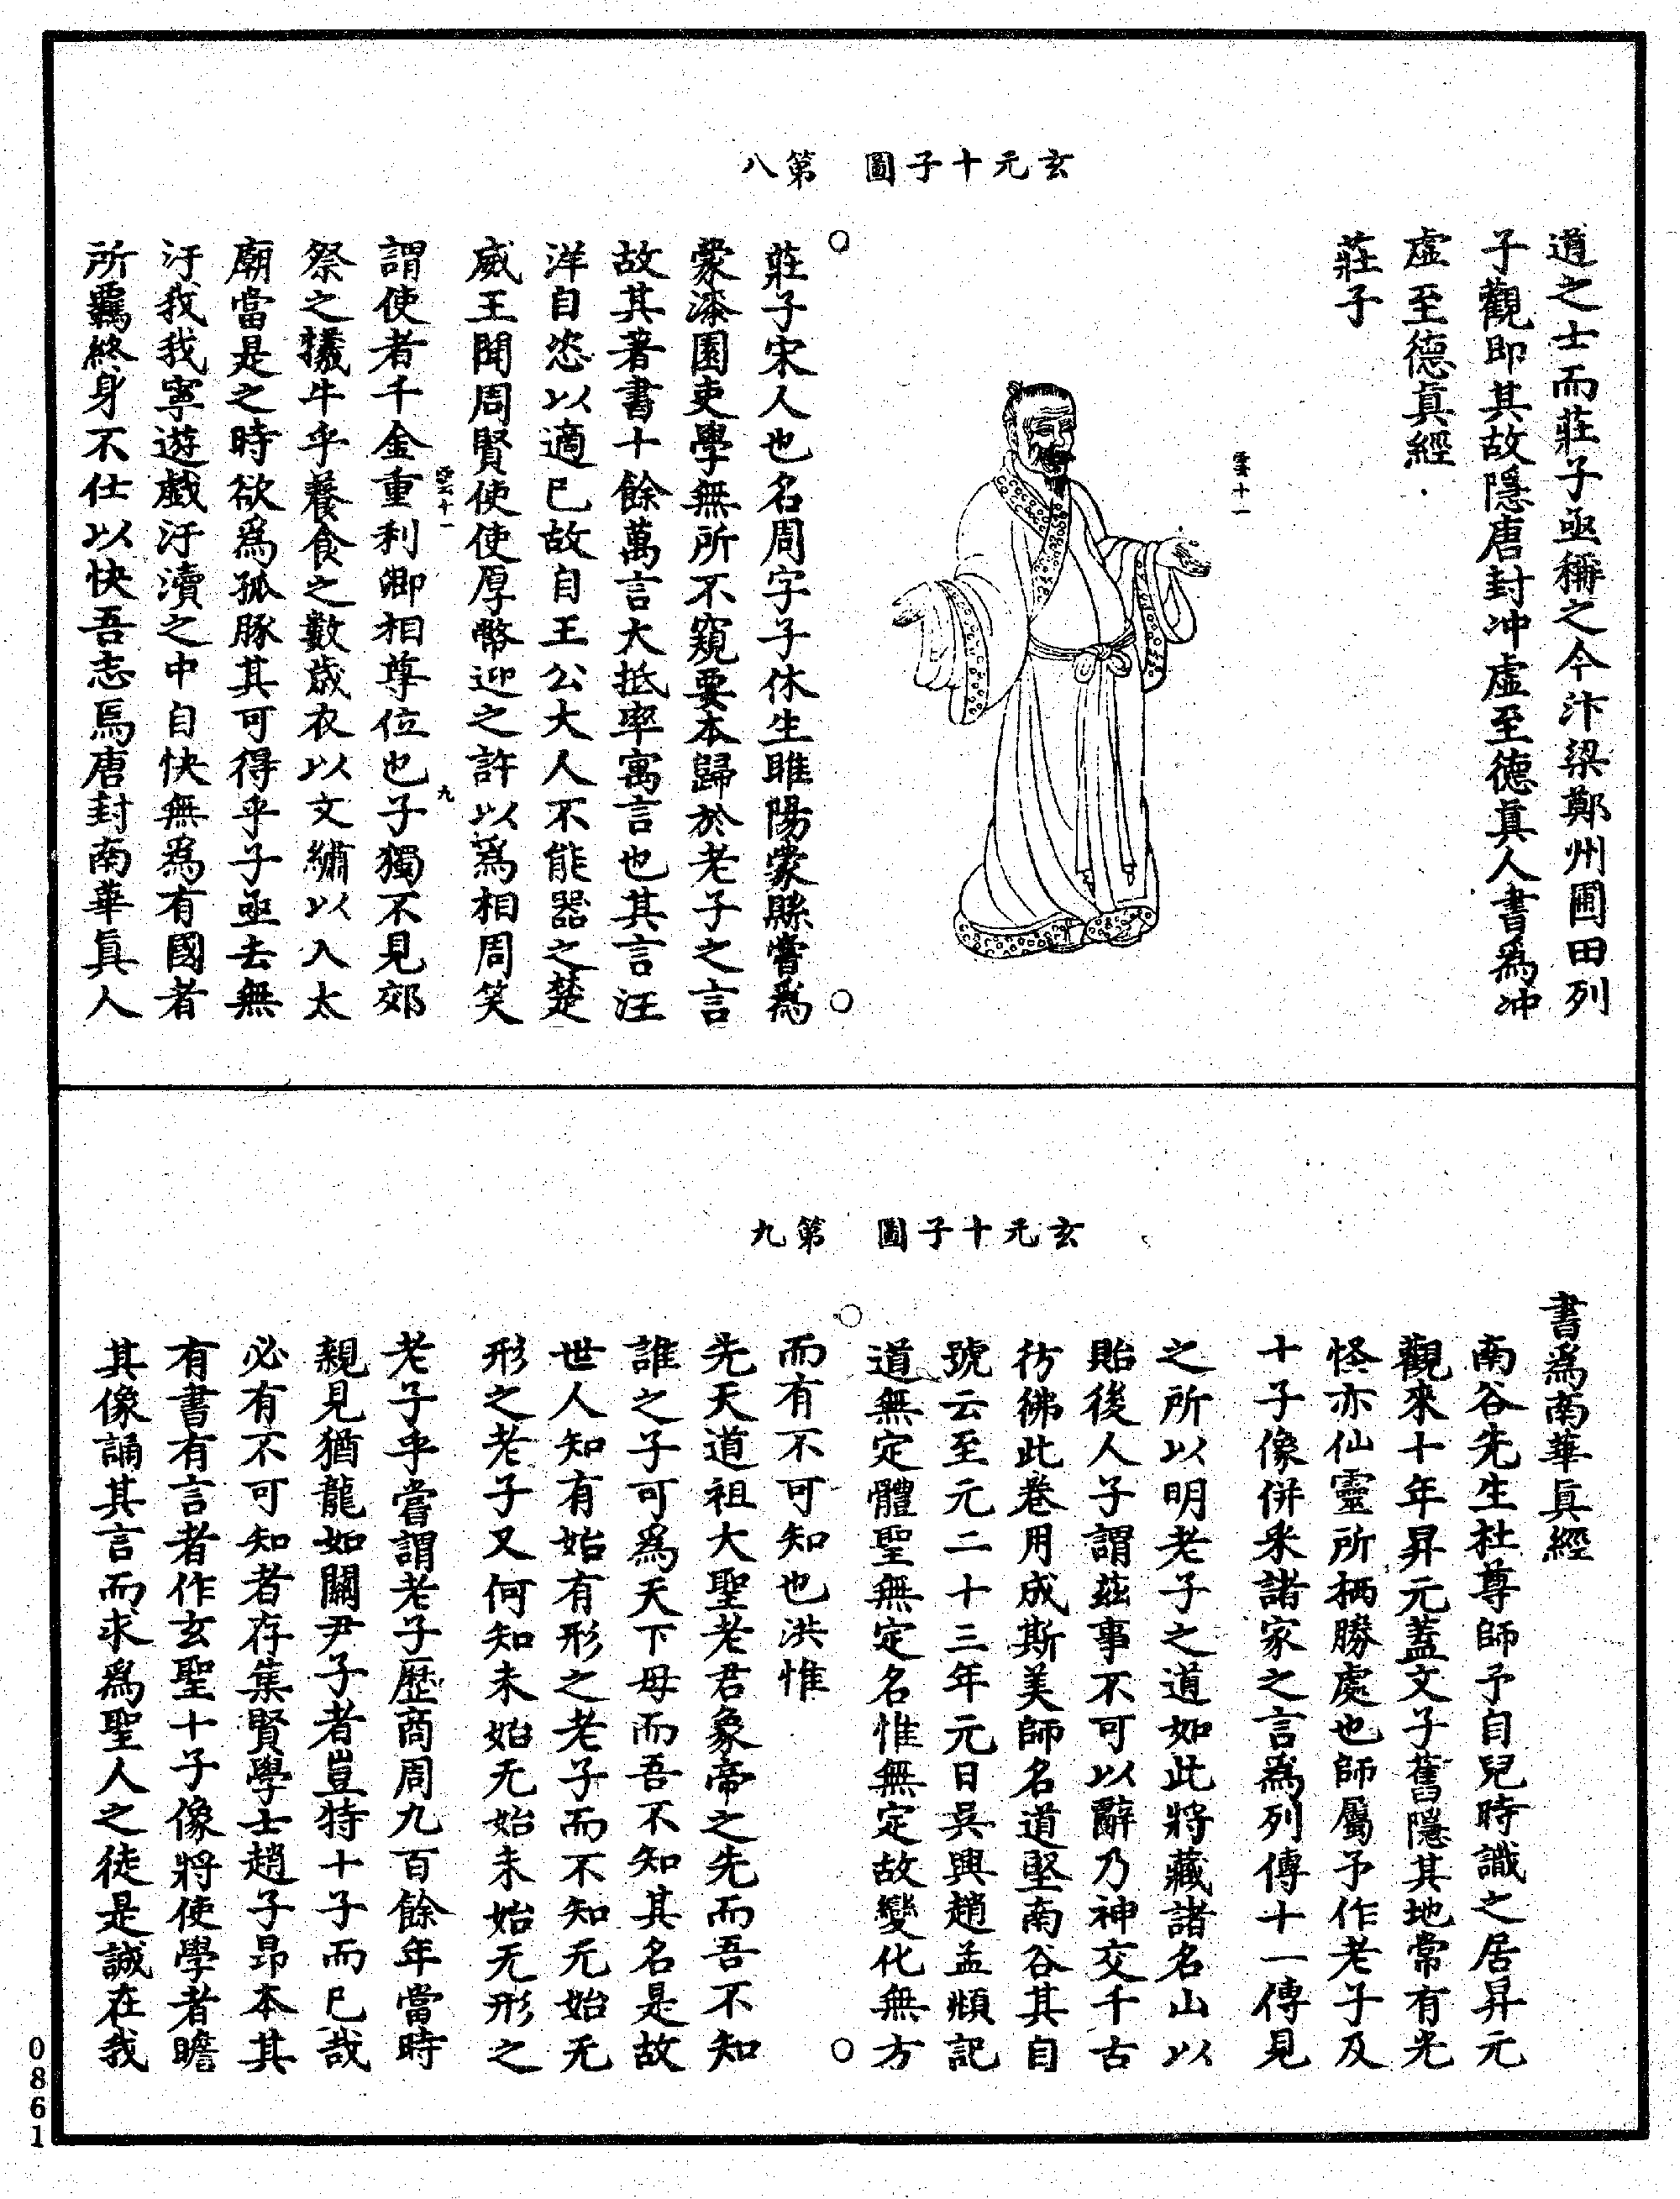 玄元十子圖　第八
道之士而莊子亟稱之今汴梁鄭州圃田列
子觀即其故隱唐封冲虛至德真人書為冲
虛至德真經
莊子
雲十一
莊子宋人也名周字子休生睢陽蒙縣嘗為
蒙漆園吏學無所不窺要本歸於老子之言
故其著書十餘萬言大抵率寓言也其言汪
洋自恣以適己故自王公大人不能器之楚
威王聞周賢使使厚幣迎之許以為相周笑
雲十一　九
謂使者千金重利卿相尊位也子獨不見郊
祭之犧牛乎養食之數歲衣以文繡以入太
廟當是之時欲為孤豚其可得乎子亟去無
汙我我寧遊戲汙瀆之中自快無為有國者
所羈終身不仕以快吾志焉唐封南華真人
玄元十子圖　第九
書為南華真經
南谷先生杜尊師予自兒時識之居昇元
觀來十年昇元蓋文子舊隱其地常有光
怪亦仙靈所栖勝處也師屬予作老子及
十子像併釆諸家之言為列傳十一傳見
之所以明老子之道如此將藏諸名山以
貽後人子謂茲事不可以辭乃神交千古
彷彿此卷用成斯美師名道堅南谷其自
號云至元二十三年元日吳興趙孟頫記
道無定體聖無定名惟無定故變化無方
而有不可知也洪惟
先天道祖大聖老君象帝之先而吾不知
誰之子可為天下母而吾不知其名是故
世人知有始有形之老子而不知无始无
形之老子又何知未始无始未始无形之
老子乎嘗謂老子歷商周九百餘年當時
親見猶龍如關尹子者豈特十子而已哉
必有不可知者存集賢學士趙子昂本其
有書有言者作玄聖十子像將使學者瞻
其像誦其言而求為聖人之徒是誠在我
0861